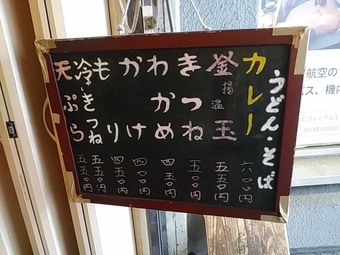 うどん・そば
カレー 六〇〇円
釜揚 温玉 五五〇円
きつね 五〇〇円
わかめ 四五〇円
かけ 四〇〇円
もり 四五〇円
冷・きつね 五五〇円
天ぷら 五五〇円
航空の
ビス、機内